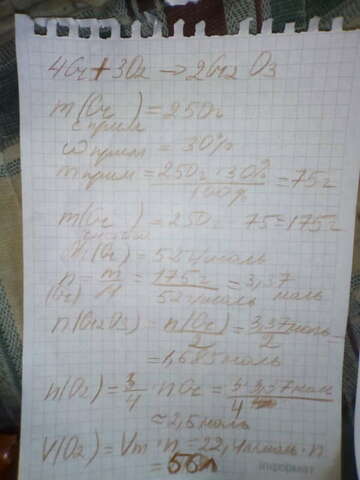 4Cr + 3O2 → 2Cr2O3
m(Cr с прим) = 250г
ω прим = 30%
m прим = 250г · 30% / 100% = 75г
m(Cr) = 250г 75 = 175г
M(Cr) = 52г/моль
n(Cr) = m/M = 175г / 52г/моль = 3,37 моль
n(Cr2O3) = n(Cr)/2 = 3,37моль/2
= 1,685моль
n(O2) = 3/4 · nCr = 3·3,37моль / 4
≈ 2,5моль
V(O2) = Vm · n = 22,4л/моль · n
= 56л